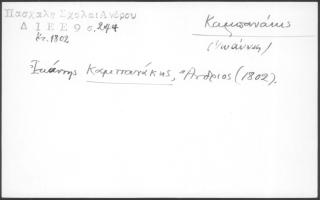 Πασχάλη Σχολαι Άνδρου
Δ Ι Ε Ε 9 σ. 244
ἔτ. 1802
Καμπανάκης
(Ἰωάννης)
Ἰωάννης Καμπανάκης, Ἄνδριος (1802).